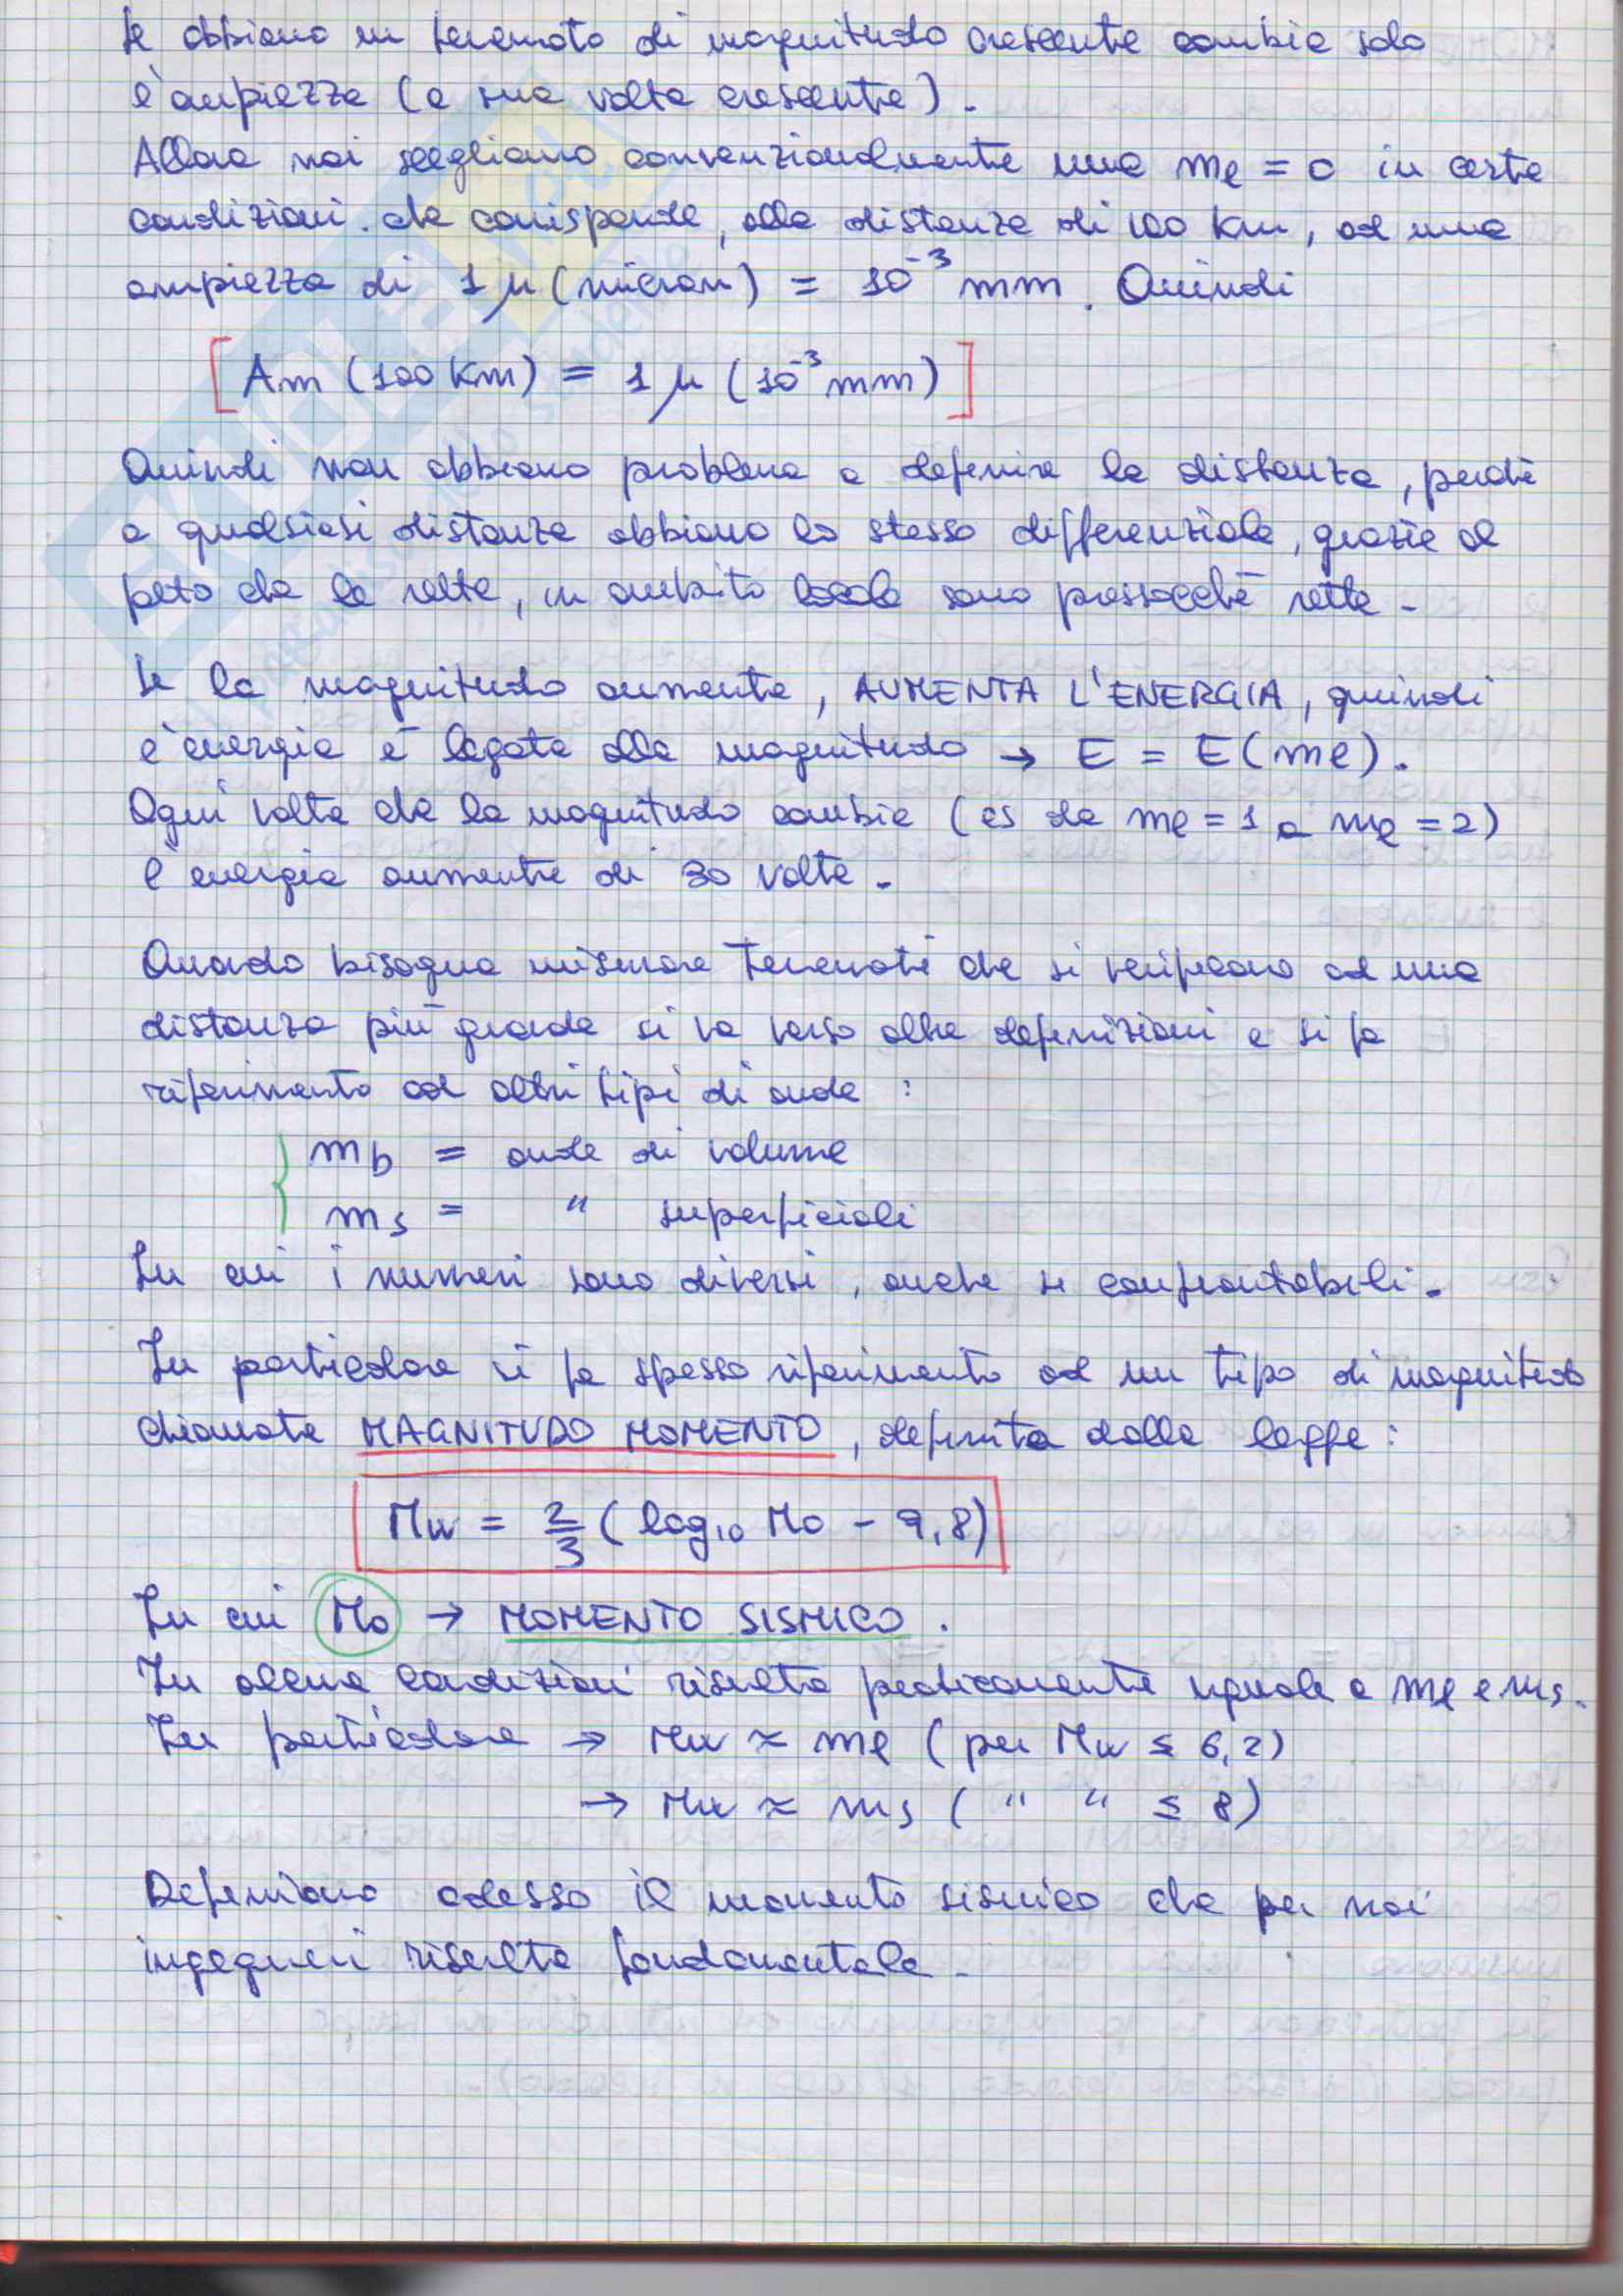 Se abbiamo un terremoto di magnitudo crescente cambia solo
l'ampiezza (a sua volta crescente).
Allora noi scegliamo convenzionalmente una ml = 0 in certe
condizioni. che corrisponde, alla distanza di 100 km, ad una
ampiezza di 1 μ (micron) = 10⁻³ mm. Quindi
[Am (100 Km) = 1 μ (10⁻³ mm)]
Quindi non abbiamo problema a definire la distanza, perchè
a qualsiasi distanza abbiamo lo stesso differenziale, grazie al
fatto che le rette, in ambito locale sono pressocchè rette.
Se la magnitudo aumenta, AUMENTA L'ENERGIA, quindi
l'energia è legata alla magnitudo → E = E(ml).
Ogni volta che la magnitudo cambia (es da ml = 1 a ml = 2)
l'energia aumenta di 30 volte.
Quando bisogna misurare Terremoti che si verificano ad una
distanza più grande si va verso altre definizioni e si fa
riferimento ad altri tipi di onde :
{ mb = onde di volume
ms = " superficiali
In cui i numeri sono diversi, anche se confrontabili.
In particolare si fa spesso riferimento ad un tipo di magnitudo
chiamata MAGNITUDO MOMENTO, definita dalla legge :
Mw = 2/3 (log₁₀ Mo - 9,8)
In cui Mo → MOMENTO SISMICO.
In alcune condizioni risulta praticamente uguale a ml e ms.
In particolare → Mw ≈ ml (per Mw ≤ 6,2)
→ Mw ≈ ms ( " " ≤ 8)
Definiamo adesso il momento sismico che per noi
ingegneri risulta fondamentale.